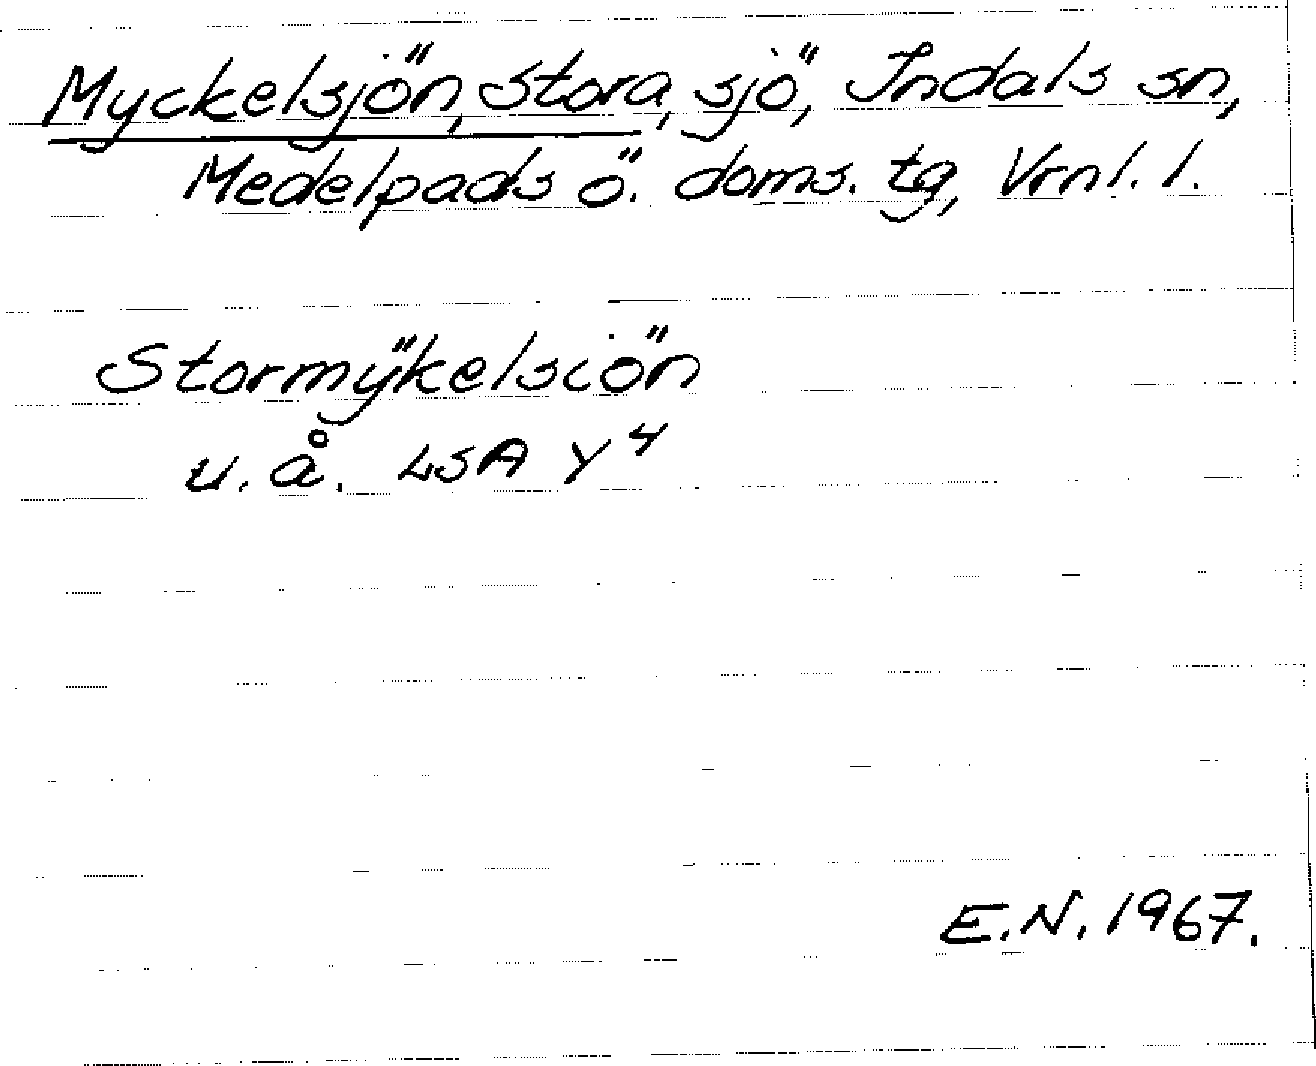 Myckelsjön, Stora, sjö, Indals sn,
Medelpads ö. doms. tg, Vrnl. l.
Stormÿkelsiön
u. å. LSA Y 4
E.N. 1967.